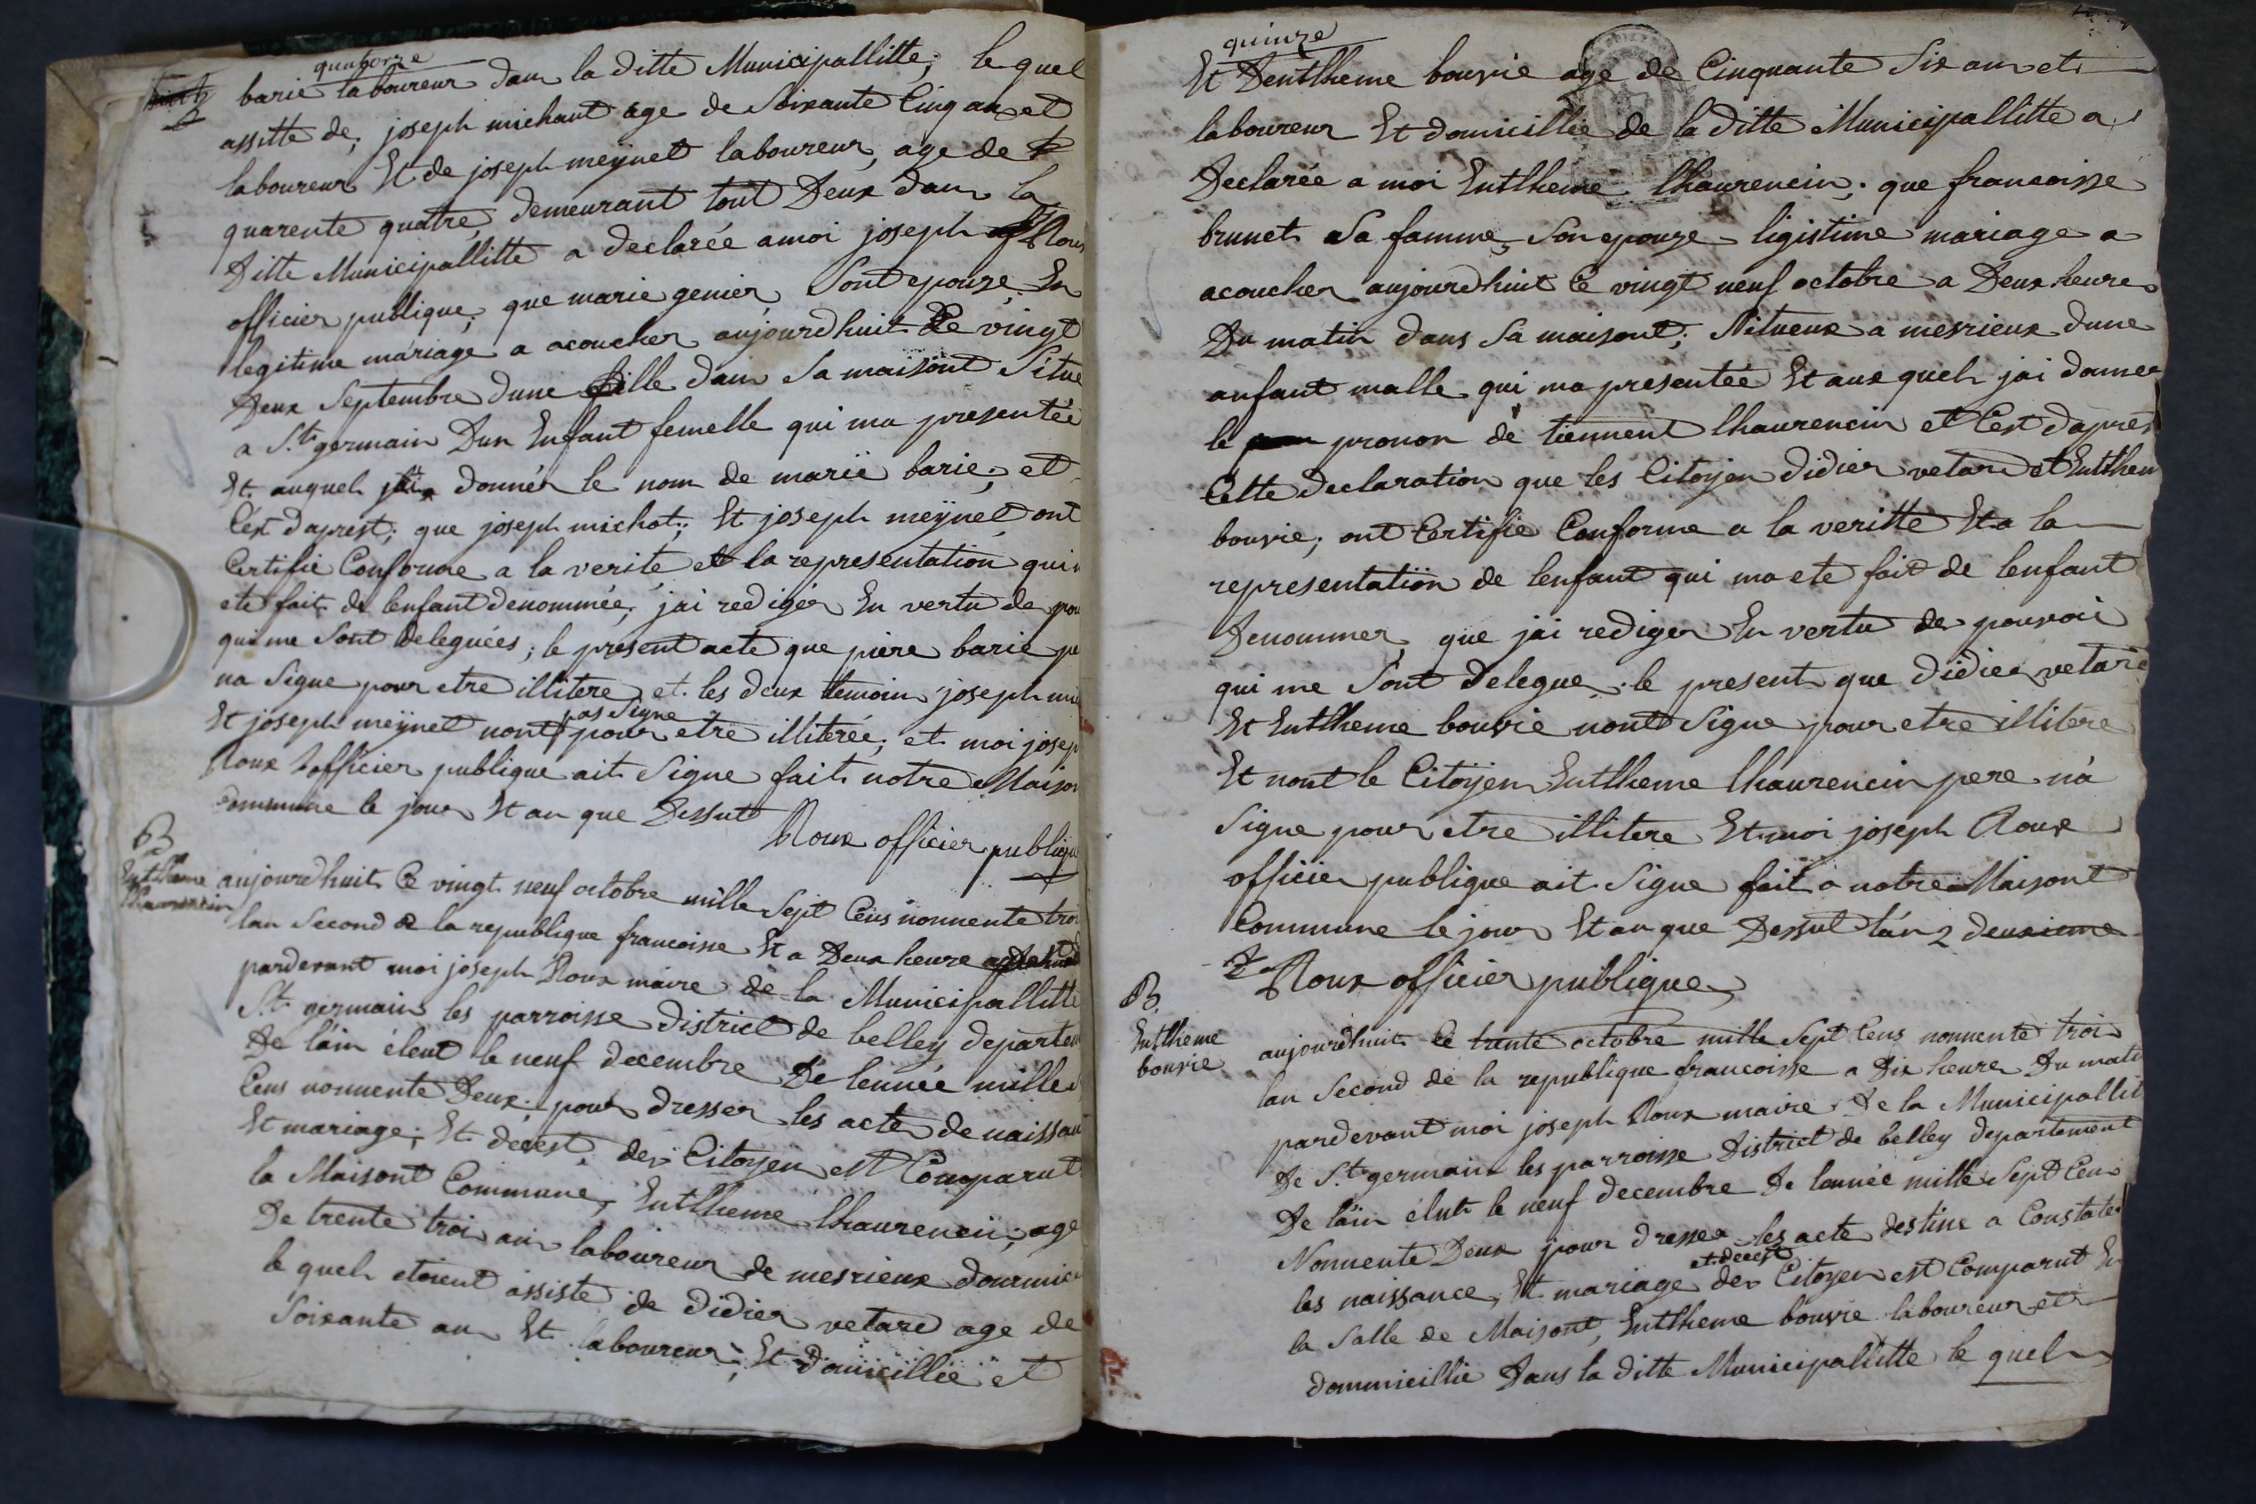 quatorze
barie laboureur dans la ditte Municipallitte; le quel
assitte de; joseph michaut age de Soixante Cinq an et
laboureur Et de joseph meÿnet laboureur, age de
quarente quatre, demeurant tout Deux dans la
Ditte Municipallitte a declarée a moi joseph Roux
officier publique; que marie genier, Sont epouze En
legitime mariage a acoucher aujourdhuit Le vingt
Deux Septembre dune fille dans Sa maisont Situe
a St. germain Dun Enfant femelle qui ma presentée
Et auquel jai donner le nom de marie barie; et
C'est daprest; que joseph michot; Et joseph meÿnet ont
Certifie Conforme a la verité et la representation qui
ete fait de lenfant denommée, jai rediger En vertu de pou
qui me Sont deleguées; le present acte que piere barie pe
na Signe pour etre illitere et les deux temoin joseph mi
Et joseph meÿnet nont pas Signe pour etre illiterée; et moi josep
Roux officier publique ait Signe fait notre Maison
Commune le jour Et an que Dessut
Roux officier publique
B
Entlheme
lhaurencin
aujourdhuit Ce vingt neuf octobre mille Sept Cens nonnente troi
lan Second de la republique francoisse Et a Deux heure
pardevant moi joseph Roux maire de la Municipallitte
St. germain les parroisse District de belley departem
De lain éleut le neuf decembre De lennée mille
Cens nonnente Deux; pour dresser les acte de naissan
Et mariage; Et decest; des Citoyen est Comparut
la Maisont Commune, Entlheme lhaurencin; age
De trente troi an laboureur de mesrieux dommici
le quel etoient assiste de didier vetard age de
Soixante an Et laboureur; Et domicillie et
quinze
Et Dentlheme bouvie age de Cinquante Six an et
laboureur Et domicillie de la ditte Municipallitte a
Declarée a moi Entlheme lhaurencin; que francoisse
brunet Sa famme, Son epouze ligistime mariage a
acoucher aujourdhuit Ce vingt neuf octobre a Deux heure
Du matin dans Sa maisont; Situeux a mesrieux dune
anfant malle qui ma presentée Et aux quel jai donner
le pronon de tiennent lhaurencin et C'est daprest
Cette declaration que les Citoyen didier vetard et Entlhem
bouvie; ont Certifie Conforme a la veritte Et a la
representation de lenfant qui ma ete fait de lenfant
Denommer, que jai rediger En vertu de pouvoir
qui me Sont delegue; le present que didier vetard
Et Entlheme bouvie nont Signe pour etre illitere
Et nont le Citoÿen Entlheme lhaurencin pere n'a
Signe pour etre illitere Et moi joseph Roux
officier publique ait Signe fait a notre Maisont
Commune le jour Et an que Dessut l'an 2 deuxieme
Roux officier publique
B.
Entlheme
bouvie
aujourdhuit Ce trente octobre mille Sept Cens nonnente troi
lan Second de la republique francoisse a Dix heure Du mati
pardevant moi joseph Roux maire De la Municipallit
De St. germain les parroisse District de belley departement
De lain élut le neuf decembre De lannée mille Sept Cens
Nonnente Deux pour dresser les acte destine a Constater
les naissance, Et mariage et decest des Citoyen est Comparut En
la Salle de Maisont, Entlheme bouvie laboureur et
dommicillie Dans la ditte Municipalitte le quel